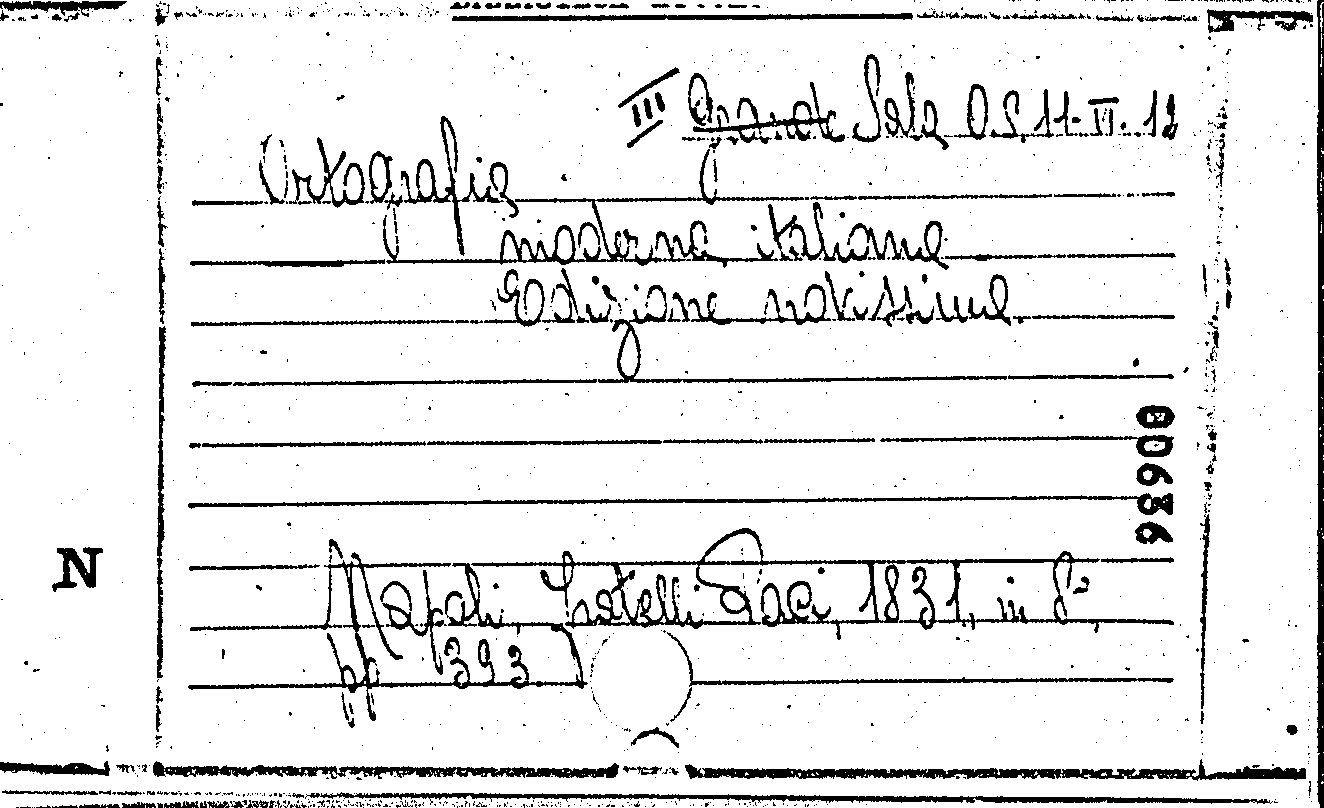 III Grande Sala O.S. 11-VI. 12
Ortografia
moderna italiana
Edizione novissima.
00636
N
Napoli, Fratelli Paci, 1831, in 8°,
pp. 393.